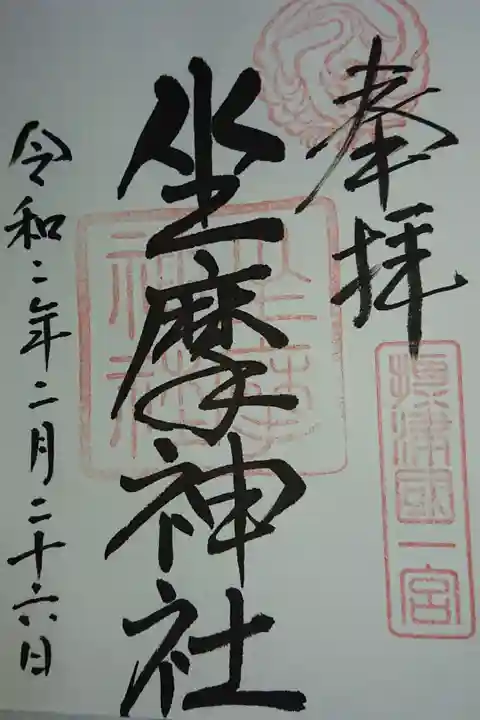 奉拝
摂津國一宮
坐摩神社
坐摩神社
令和二年二月二十六日